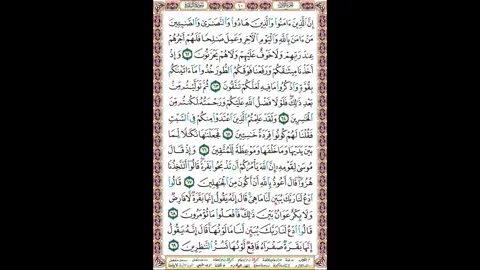 إِنَّ الَّذِينَ ءَامَنُوا وَالَّذِينَ هَادُوا وَالنَّصَٰرَىٰ وَالصَّٰبِـِٔينَ
مَنْ ءَامَنَ بِاللَّهِ وَالْيَوْمِ الْءَاخِرِ وَعَمِلَ صَٰلِحًا فَلَهُمْ أَجْرُهُمْ
عِندَ رَبِّهِمْ وَلَا خَوْفٌ عَلَيْهِمْ وَلَا هُمْ يَحْزَنُونَ ٦٢ وَإِذْ
أَخَذْنَا مِيثَٰقَكُمْ وَرَفَعْنَا فَوْقَكُمُ الطُّورَ خُذُوا مَا ءَاتَيْنَٰكُم
بِقُوَّةٍ وَاذْكُرُوا مَا فِيهِ لَعَلَّكُمْ تَتَّقُونَ ٦٣ ثُمَّ تَوَلَّيْتُم مِّن
بَعْدِ ذَٰلِكَ فَلَوْلَا فَضْلُ اللَّهِ عَلَيْكُمْ وَرَحْمَتُهُ لَكُنتُم مِّنَ
الْخَٰسِرِينَ ٦٤ وَلَقَدْ عَلِمْتُمُ الَّذِينَ اعْتَدَوْا مِنكُمْ فِي السَّبْتِ
فَقُلْنَا لَهُمْ كُونُوا قِرَدَةً خَٰسِـِٔينَ ٦٥ فَجَعَلْنَٰهَا نَكَٰلًا لِّمَا
بَيْنَ يَدَيْهَا وَمَا خَلْفَهَا وَمَوْعِظَةً لِّلْمُتَّقِينَ ٦٦ وَإِذْ قَالَ
مُوسَىٰ لِقَوْمِهِ إِنَّ اللَّهَ يَأْمُرُكُمْ أَن تَذْبَحُوا بَقَرَةً قَالُوا أَتَتَّخِذُنَا
هُزُوًا قَالَ أَعُوذُ بِاللَّهِ أَنْ أَكُونَ مِنَ الْجَٰهِلِينَ ٦٧ قَالُوا
ادْعُ لَنَا رَبَّكَ يُبَيِّن لَّنَا مَا هِيَ قَالَ إِنَّهُ يَقُولُ إِنَّهَا بَقَرَةٌ لَّا فَارِضٌ
وَلَا بِكْرٌ عَوَانٌ بَيْنَ ذَٰلِكَ فَافْعَلُوا مَا تُؤْمَرُونَ ٦٨
قَالُوا ادْعُ لَنَا رَبَّكَ يُبَيِّن لَّنَا مَا لَوْنُهَا قَالَ إِنَّهُ يَقُولُ
إِنَّهَا بَقَرَةٌ صَفْرَاءُ فَاقِعٌ لَّوْنُهَا تَسُرُّ النَّٰظِرِينَ ٦٩